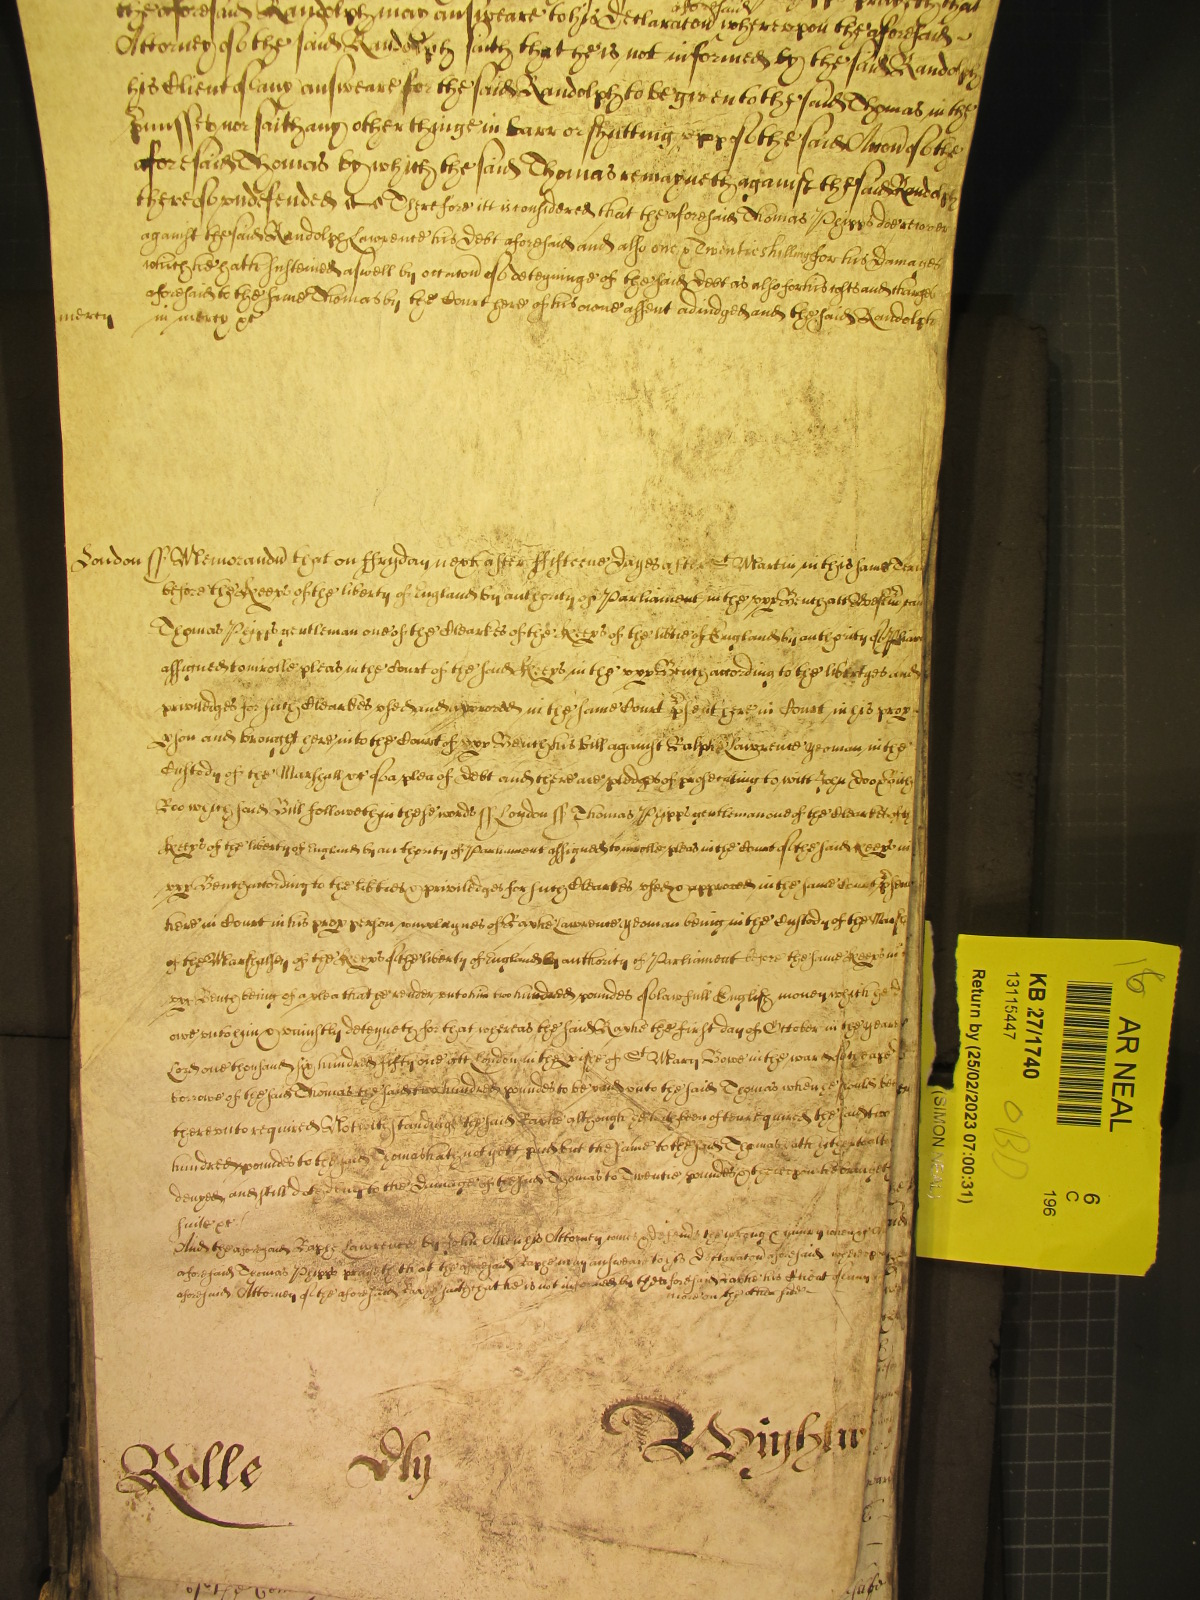 the aforesaid Randolph may answeare to his Declaracon aforesaid whereupon the aforesaid
Attorney of the said Randolph saith that he is not informed by the said Randolph
his Client of any answeare for the said Randolph to be given to the said Thomas in the
premisses nor saith any other thinge in barr or of the said Accon of the
aforesaid Thomas by which the said Thomas remayneth against the said Randolph
thereof undefended Therefore itt is considered that the aforesaid Thomas Phipps doe recover
against the said Randolph Lawrence his Debt aforesaid and also one & Twentie shillings for his Damages
which he hath susteined aswell by occacon of deteyninge of the said Debt as also for his costs and charges
aforesaid to the same Thomas by the Court here of his owne assent adiudged and the said Randolph
mercy in mercy &c
London ss Memorand that on ffryday next after ffifteene Dayes after St Martin in this same Terme
before the Keeps of the liberty of England by authority of Parliament in the upp Bench att Westm came
Thomas Phipps gentleman one of the Clearkes of the Keeps of the libtie of England by authority of Parliam
assigned to inrolle pleas in the Court of the said Keeps in the upp Bench according to the libertyes and
priviledges for such Clearkes used and approved in the same Court psent here in Court in his prop
pson and brought here into the Court of upp Bench his bill against Ralphe Lawrence yeoman in the
Custody of the Marshall &c of a plea of Debt and there are pledges of prosecuting to witt John Doo & Rich
Roo which said Bill followeth in these words ss London ss Thomas Phipps gentleman one of the Clearkes of the
Keeps of the liberty of England by authority of Parliament assigned to inrolle pleas in the Court of the said Keeps in
upp Bench according to the libties & priviledges for such Clearkes used & approved in the same Court psent
here in Court in his prop person complaynes of Raphe Lawrence yeoman being in the Custody of the Marshall
of the Marshalsey of the Keeps of the liberty of England by authority of Parliament before the same Keeps in
upp Bench being of a plea that he render unto him two hundred pounds of lawfull English money which he
owe unto him & uniustly deteyneth for that whereas the said Raphe the first day of October in the yeare
Lord one thousand six hundred fifty one att London in the pish of St Mary Bowe in the ward of Cheape
borrowe of the said Thomas the said two hundred pounds to be paid unto the said Thomas when he should be
thereunto required Notwithstandinge the said Raphe although he hath been often required the said two
hundred pounds to the said Thomas hath not yett paid but the same to the said Thomas hath hitherto
denyed and still doth deny to the Damage of the said Thomas to Twentie pounds & thereupon he bringeth
suite &c
And the aforesaid Raphe Lawrence by John Attorney comes & defends the wrong & iniury when &c
aforesaid Thomas Phipps prayeth that the aforesaid Raphe may answeare to his Declaracon aforesaid whereupon
aforesaid Attorney of the aforesaid Raphe saith that he is not informed by the aforesaid Raphe his Client of any
more on the other side
Rolle
Wightw
16
AR NEAL
KB 27/1740
13115447
Return by (25/02/2023 07:00:31)
OBD
6
C
196
(SIMON NEAL)